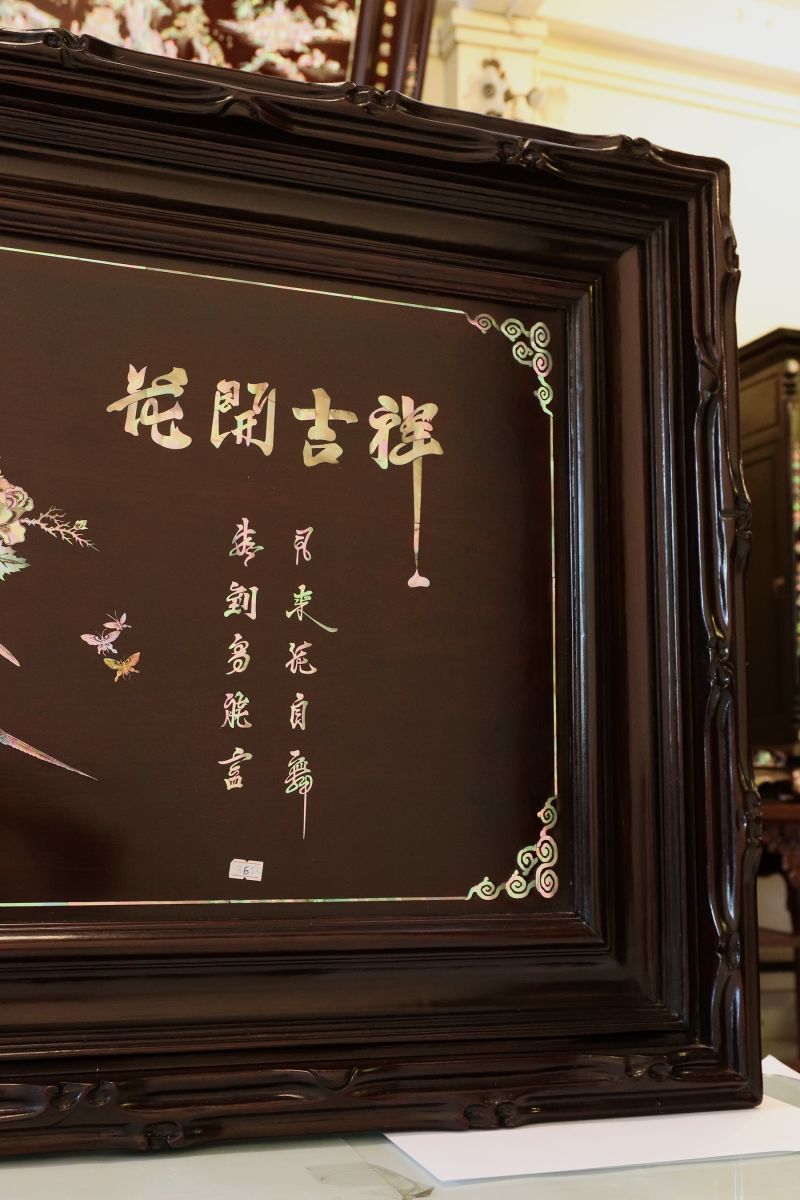 花開吉祥
风来花自舞
春到鳥能言